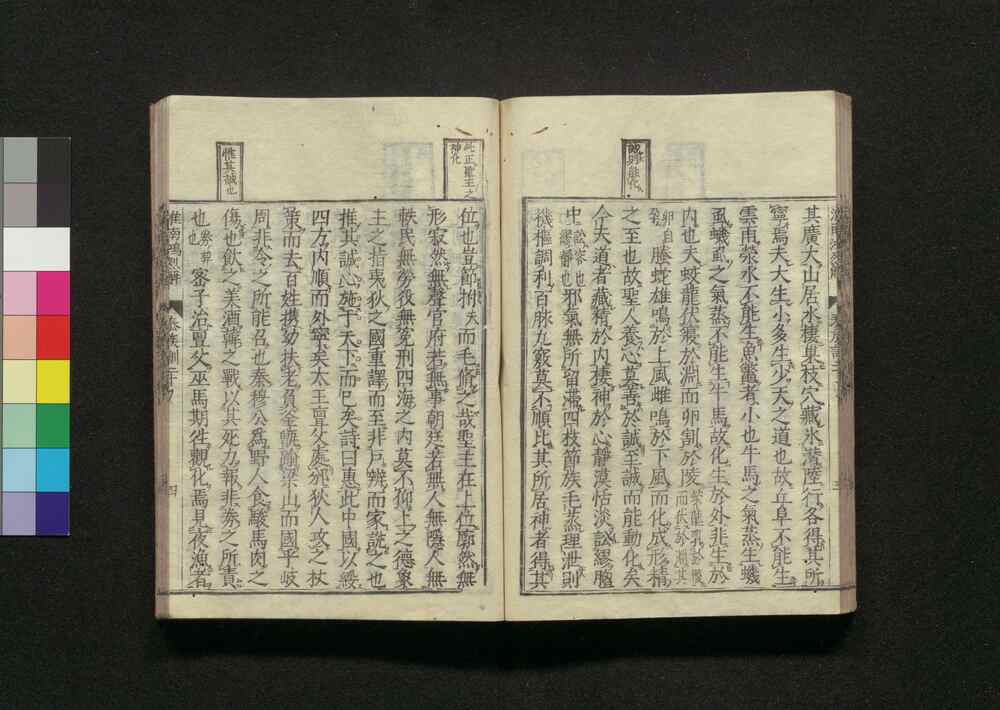 誠則能化
其廣大山居水棲巢枝穴藏水潛陸行各得其所
寧焉夫大生小多生少天之道也故丘阜不能生
雲雨滎水不能生魚鼈者小也牛馬之氣蒸生蟣
虱蟣虱之氣蒸不能生牛馬故化生於外非生於
內也夫蛟龍伏寢於淵而卵割於陵
螣蛇雄鳴於上風雌鳴於下風而化成形精
之至也故聖人養心莫善於誠至誠而能動化矣
今夫道者藏精於內棲神於心靜漠恬淡訟繆胸
中邪氣無所留滯四枝節族毛蒸理泄則
機樞調利百脉九竅莫不順比其所居神者得其
此正聖王之神化
惟其誠也
位也豈節拊而毛脩之哉聖主在上位廓然無
形寂然無聲官府若無事朝廷若無人無隱人無
軼民無勞役無冤刑四海之內莫不仰上之德象
主之指夷狄之國重譯而至非戶辨而家說之也
推其誠心施于天下而已矣詩曰惠此中國以綏
四方內順而外寧矣太王亶父處邠狄人攻之杖
策而去百姓携幼扶老負釜甑踰梁山而國乎岐
周非令之所能召也秦穆公爲野人食駿馬肉之
傷也飲之美酒韓之戰以其死力報非劵之所責
也密子治亶父巫馬期往觀化焉見夜漁者
淮南鴻烈解
泰族訓二十
四